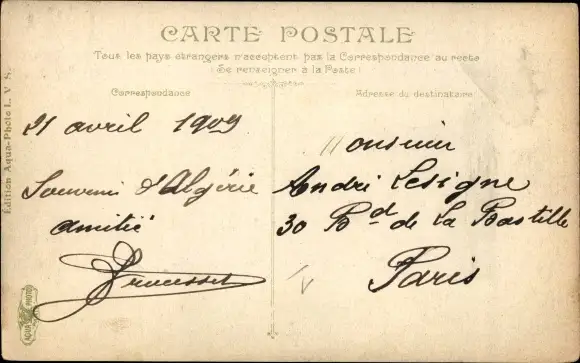 CARTE POSTALE
Tous les pays étrangers n'acceptent pas la Correspondance au recto
(Se renseigner à la Poste)
Correspondance
Adresse du destinataire
21 avril 1909
Souvenir d'Algérie
amitié
Monsieur
André Lesigne
30 Bd de La Bastille
Paris
Édition Aqua-Photo L. V. S.
AQUA PHOTO